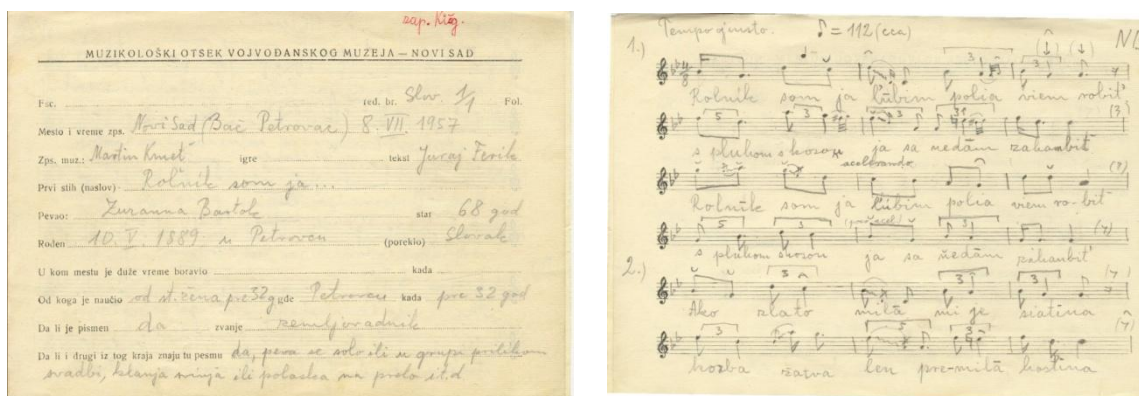 zap. Kišg.
MUZIKOLOŠKI OTSEK VOJVOĐANSKOG MUZEJA — NOVI SAD
Fsc. red. br. Slov. 1/1 Fol.
Mesto i vreme zps. Novi Sad (Bač Petrovac) 8. VII. 1957
Zps. muz.: Martin Kmeť igre tekst Juraj Ferik
Prvi stih (naslov) Roľnik som ja...
Pevao: Zuzanna Bartok star 68 god
Rođen 10. V. 1889 u Petrovcu (poreklo) Slovak
U kom mestu je duže vreme boravio kada
Od koga je naučio od st. žena pre 32 g gde Petrovcu kada pre 32 god
Da li je pismen da zvanje zemljoradnik
Da li i drugi iz tog kraja znaju tu pesmu da, peva se solo ili u grupi prilikom
svadbi, klanja svinja ili polaska na prelo itd
Tempo giusto. ♪ = 112 (cca)
1.)
Rolnik som ja ľúbim polia viem robiť
s pluhom s kosou ja sa nedám zahanbiť
acelerando
Rolnik som ja ľúbim polia viem ro-biť
s pluhom skosou ja sa nedám zahanbiť
2.)
Ako zlato milá mi je siatina
kozba žatva len pre-milá hostina